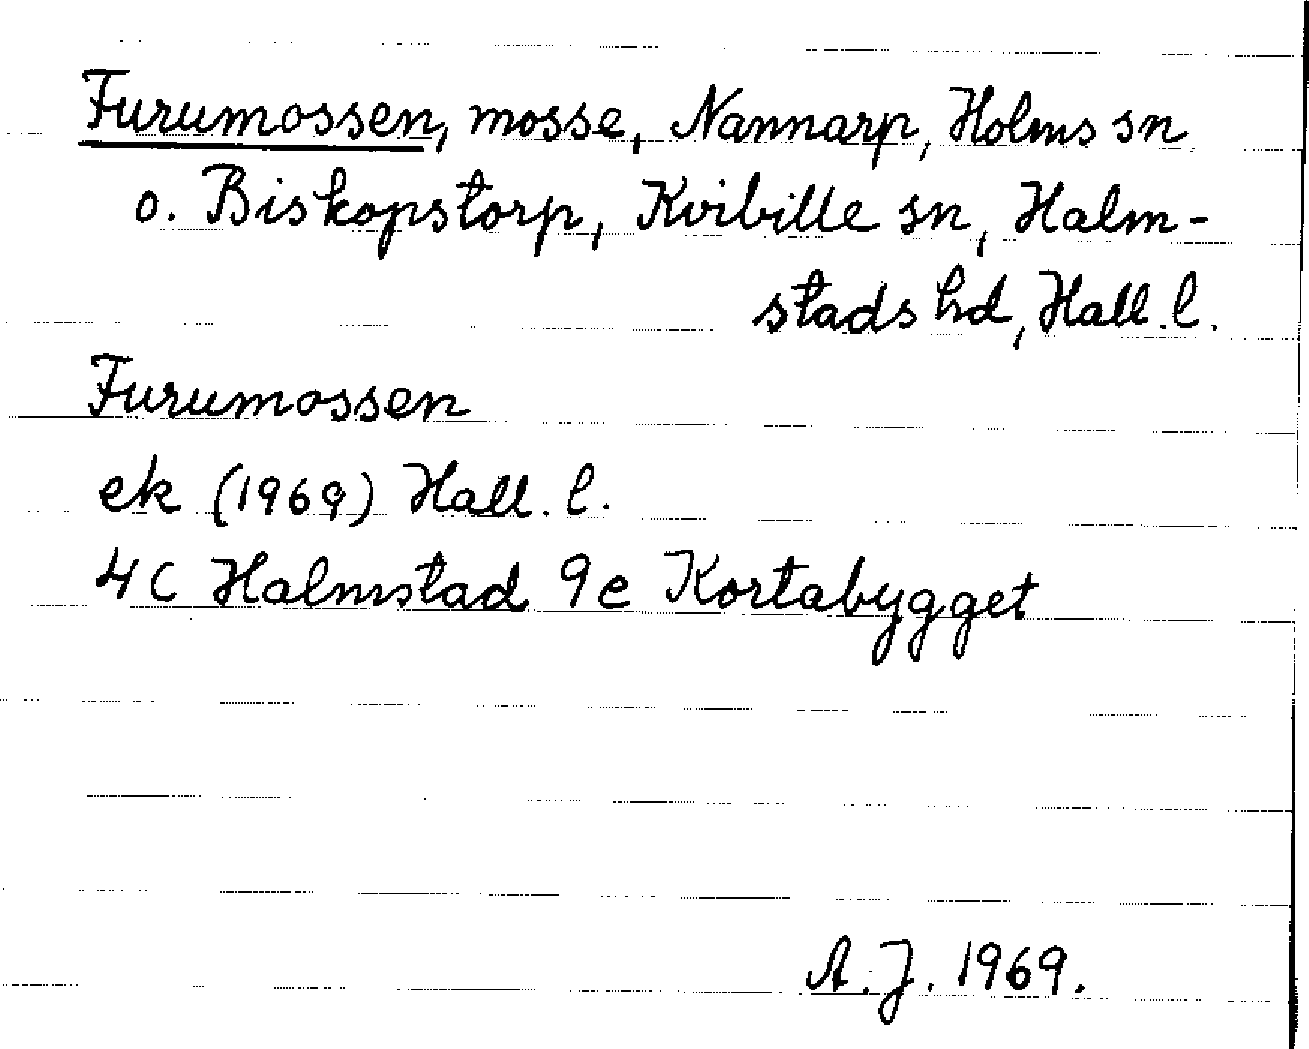 Furumossen, mosse, Nannarp, Holms sn
o. Biskopstorp, Kvibille sn, Halm-
stads hd, Hall. l.
Furumossen
ek (1969) Hall. l.
4C Halmstad 9e Kortabygget
A. J. 1969.